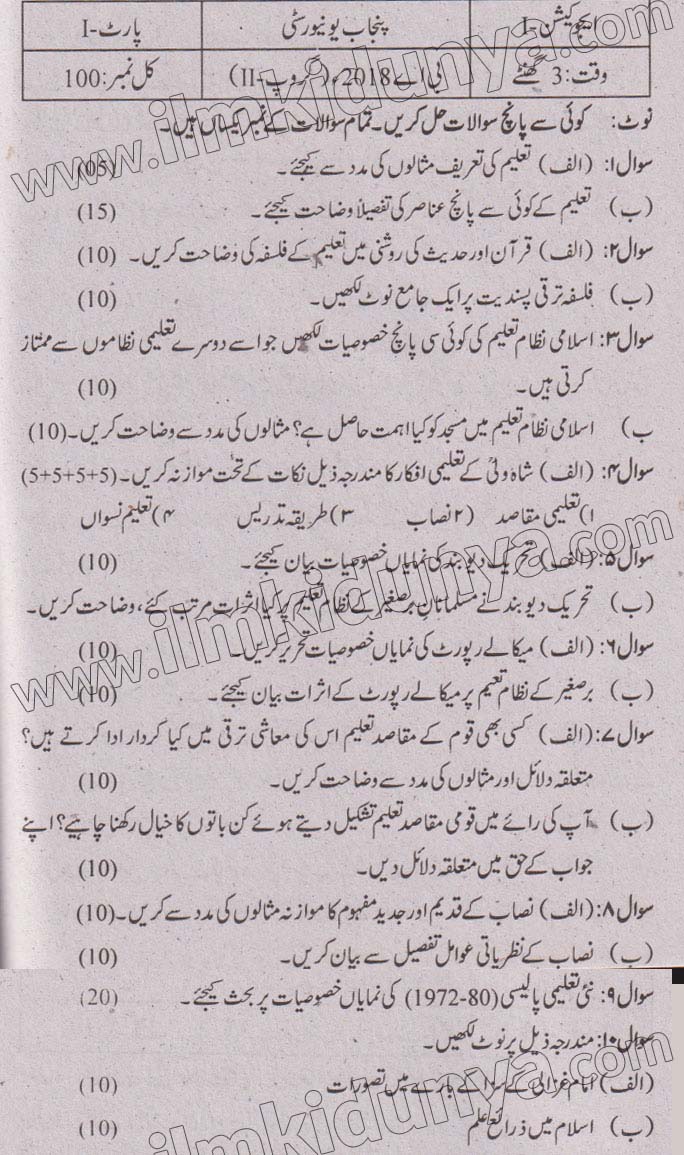 ایجوکیشن-I پنجاب یونیورسٹی پارٹ-I
وقت: 3 گھنٹے بی اے 2018ء (گروپ-II) کل نمبر: 100
نوٹ: کوئی سے پانچ سوالات حل کریں۔ تمام سوالات کے نمبر یکساں ہیں۔
سوال۱: (الف) تعلیم کی تعریف مثالوں کی مدد سے کیجئے۔ (05)
(ب) تعلیم کے کوئی سے پانچ عناصر کی تفصیلاً وضاحت کیجئے۔ (15)
سوال۲: (الف) قرآن اور حدیث کی روشنی میں تعلیم کے فلسفہ کی وضاحت کریں۔ (10)
(ب) فلسفہ ترقی پسندیت پر ایک جامع نوٹ لکھیں۔ (10)
سوال۳: اسلامی نظام تعلیم کی کوئی سی پانچ خصوصیات لکھیں جو اسے دوسرے تعلیمی نظاموں سے ممتاز
کرتی ہیں۔ (10)
ب) اسلامی نظام تعلیم میں مسجد کو کیا اہمت حاصل ہے؟ مثالوں کی مدد سے وضاحت کریں۔ (10)
سوال۴: (الف) شاہ ولیؒ کے تعلیمی افکار کا مندرجہ ذیل نکات کے تحت موازنہ کریں۔ (5+5+5+5)
۱) تعلیمی مقاصد ۲) نصاب ۳) طریقہ تدریس ۴) تعلیم نسواں
سوال۵: (الف) تحریک دیوبند کی نمایاں خصوصیات بیان کیجئے۔ (10)
(ب) تحریک دیوبند نے مسلمانانِ برصغیر کے نظام تعلیم پر کیا اثرات مرتب کئے، وضاحت کریں۔
سوال۶: (الف) میکالے رپورٹ کی نمایاں خصوصیات تحریر کریں۔ (10)
(ب) برصغیر کے نظام تعیم پر میکالے رپورٹ کے اثرات بیان کیجئے۔ (10)
سوال۷: (الف) کسی بھی قوم کے مقاصد تعلیم اس کی معاشی ترقی میں کیا کردار ادا کرتے ہیں؟
متعلقہ دلائل اور مثالوں کی مدد سے وضاحت کریں۔ (10)
(ب) آپ کی رائے میں قومی مقاصد تعلیم تشکیل دیتے ہوئے کن باتوں کا خیال رکھنا چاہیے؟ اپنے
جواب کے حق میں متعلقہ دلائل دیں۔ (10)
سوال۸: (الف) نصاب کے قدیم اور جدید مفہوم کا موازنہ مثالوں کی مدد سے کریں۔ (10)
(ب) نصاب کے نظریاتی عوامل تفصیل سے بیان کریں۔ (10)
سوال۹: نئی تعلیمی پالیسی (1972-80) کی نمایاں خصوصیات پر بحث کیجئے۔ (20)
سوال۱۰: مندرجہ ذیل پر نوٹ لکھیں۔
(الف) امام غزالی کے سزا کے بارے میں تصورات (10)
(ب) اسلام میں ذرائع علم (10)
www.ilmkidunya.com
www.ilmkidunya.com
www.ilmkidunya.com